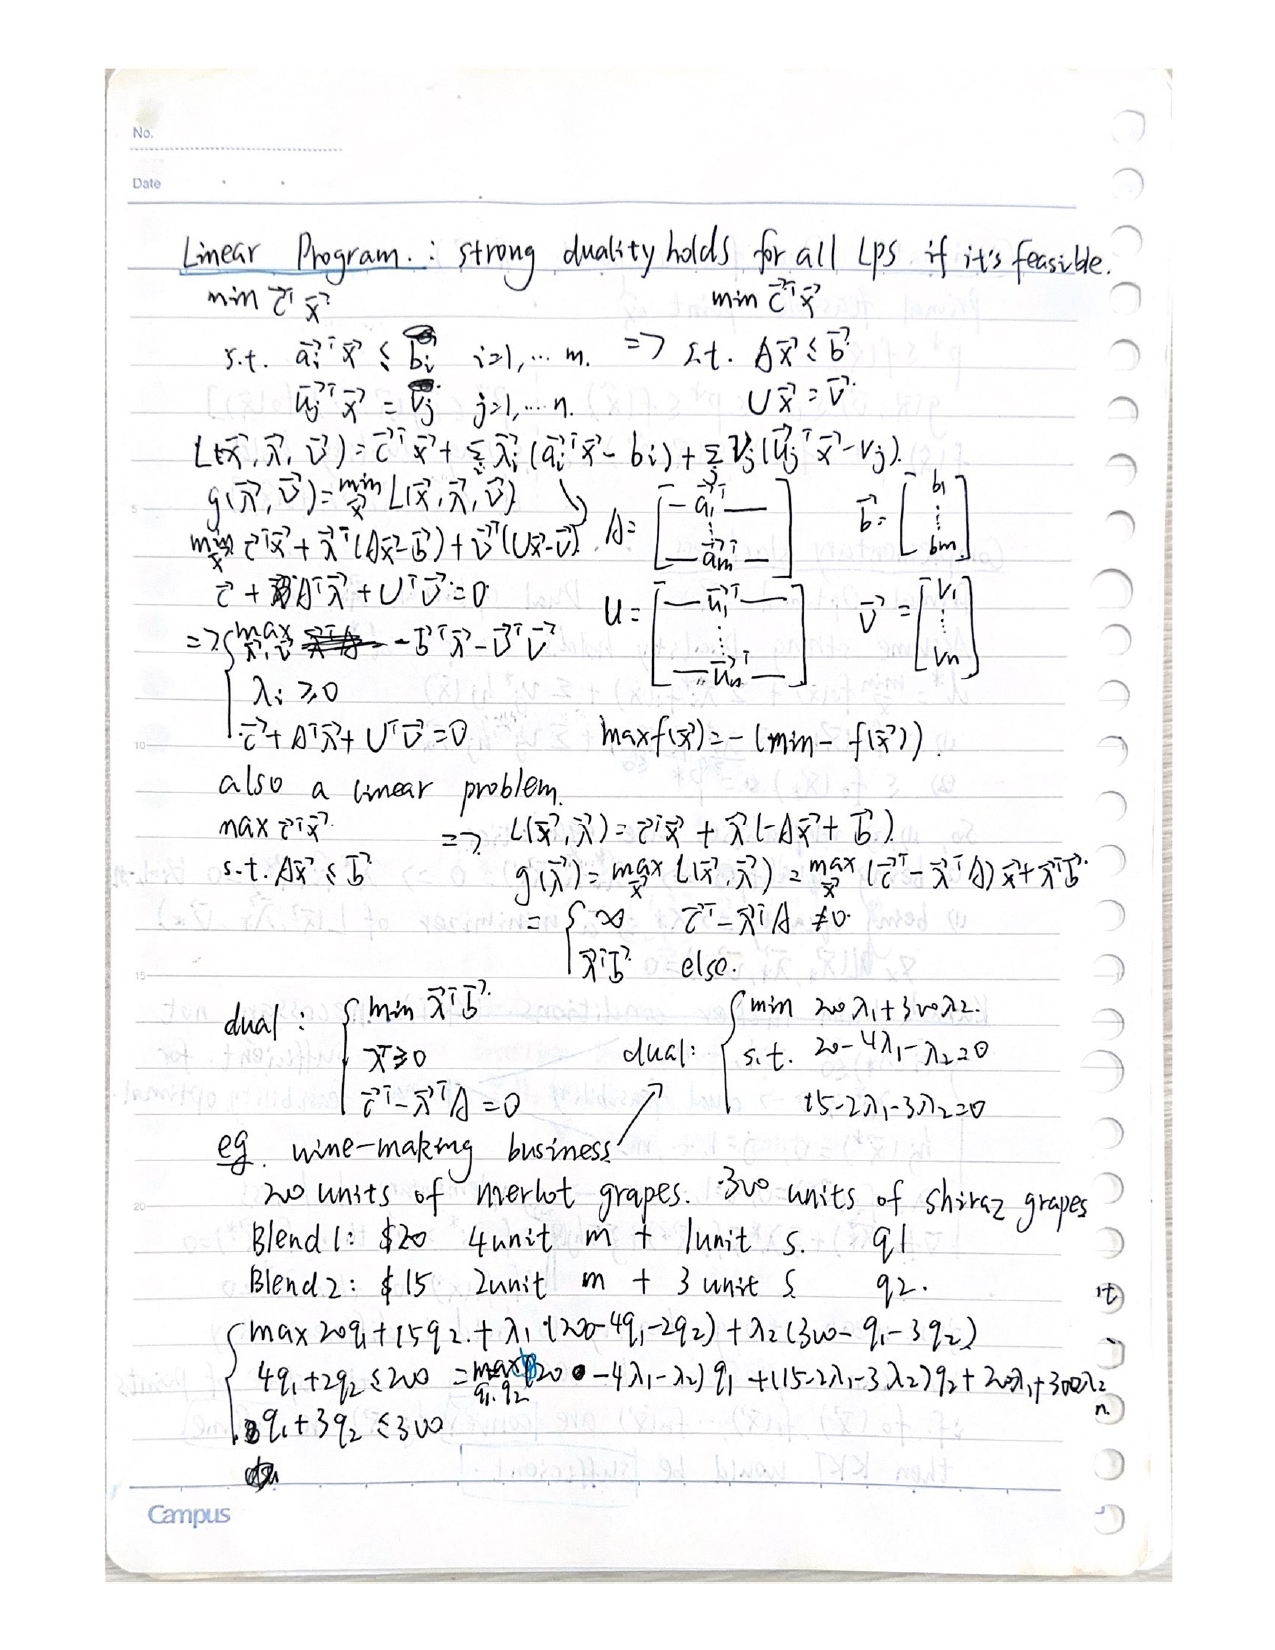 No.
Date
Linear Program. : strong duality holds for all LPs if it's feasible.
min c⃗ᵀx⃗ min c⃗ᵀx⃗
s.t. a⃗ᵢᵀx⃗ ≤ bᵢ i=1, ... m. => s.t. Ax⃗ ≤ b⃗
u⃗ⱼᵀx⃗ = vⱼ j=1, ... n. Ux⃗ = v⃗
L(x⃗, λ⃗, ν⃗) = c⃗ᵀx⃗ + Σᵢ λᵢ(a⃗ᵢᵀx⃗ - bᵢ) + Σⱼ νⱼ(u⃗ⱼᵀx⃗ - vⱼ).
g(λ⃗, ν⃗) = min_x⃗ L(x⃗, λ⃗, ν⃗)
A = [— a⃗₁ᵀ — ⋮ — a⃗mᵀ —] b⃗ = [b₁ ⋮ bm]
min_x⃗ c⃗ᵀx⃗ + λ⃗ᵀ(Ax⃗-b⃗) + ν⃗ᵀ(Ux⃗-v⃗)
c⃗ + Aᵀλ⃗ + Uᵀν⃗ = 0
U = [— u⃗₁ᵀ — ⋮ — u⃗nᵀ —] v⃗ = [v₁ ⋮ vn]
=> { max_λ⃗,ν⃗ -b⃗ᵀλ⃗ - ν⃗ᵀv⃗
λᵢ ≥ 0
c⃗ + Aᵀλ⃗ + Uᵀν⃗ = 0 max f(x⃗) = - (min - f(x⃗)).
also a linear problem.
max c⃗ᵀx⃗ => L(x⃗, λ⃗) = c⃗ᵀx⃗ + λ⃗(-Ax⃗ + b⃗)
s.t. Ax⃗ ≤ b⃗ g(λ⃗) = max_x⃗ L(x⃗, λ⃗) = max_x⃗ (c⃗ᵀ - λ⃗ᵀA)x⃗ + λ⃗ᵀb⃗
= { ∞ c⃗ᵀ - λ⃗ᵀA ≠ 0
λ⃗ᵀb⃗ else.
dual : { min λ⃗ᵀb⃗
λ⃗ ≥ 0
c⃗ᵀ - λ⃗ᵀA = 0
dual: { min 200λ1 + 300λ2.
s.t. 20-4λ1-λ2=0
15-2λ1-3λ2=0
eg. wine-making business
200 units of merlot grapes. 300 units of shiraz grapes
Blend 1: $20 4unit m + 1unit s. q1
Blend 2: $15 2unit m + 3 unit s q2.
{ max 20q1 + 15q2. + λ1 (200-4q1-2q2) + λ2 (300-q1-3q2)
4q1+2q2 ≤ 200 = max_q1,q2 (20 - 4λ1-λ2) q1 + (15-2λ1-3λ2)q2 + 200λ1+300λ2
q1+3q2 ≤ 300
Campus